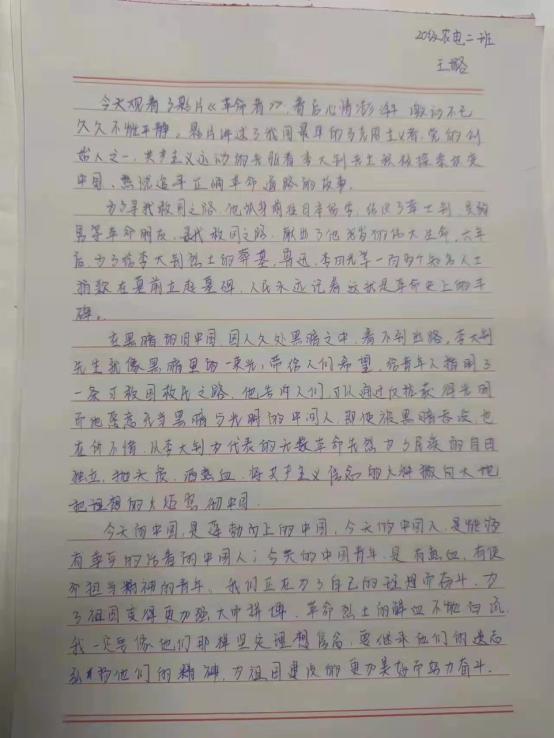 20级农电二班
王璐
今天观看了影片《革命者》,看后心情澎湃 激动不已
久久不能平静。影片讲述了我国最早的马克思主义者,党的创
始人之一,共产主义运动的先驱者李大钊先生积极探索改变
中国,热忱追寻正确革命道路的故事。
为了寻找救国之路,他只身前往日本留学,结识了章士钊,
等革命朋友,寻找救国之路,献出了他宝贵的伟大生命,六年
后,为了给李大钊烈士的葬基,鲁迅,李四光等一百多个知名人士
捐款在墓前立起墓碑,人民永远记着这就是革命史上的丰
碑。
在黑暗的旧中国,国人久处黑暗之中,看不到出路,李大钊
先生就像黑暗里的一束光,带给人们希望,给青年人指明了
一条可救国救民之路,他告诉人们,可以通过反抗获得光明
而他愿意充当黑暗与光明的中间人,即使被黑暗吞没,也
在所不惜,以李大钊为代表的无数革命先烈为了民族的自由
独立,抛头颅,洒热血,将共产主义信念的火种撒向大地
把理想的火炬 的中国
今天的中国,是蓬勃向上的中国,今天的中国人,是能够
有尊严的活着的中国人;今天的中国青年,是有热血,有使
命担当精神的青年。我们正在为了自己的理想而奋斗,为
了祖国变得更为强大而拼搏,革命烈士的鲜血不能白流,
我一定要像他们那样坚定理想信念,要继承他们的遗志
弘扬他们的精神,为祖国建设的更为美好而努力奋斗.